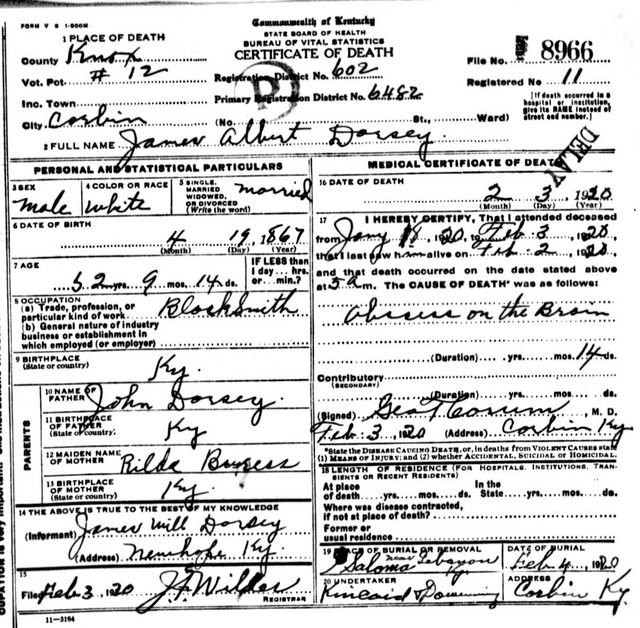 FORM V S 1-500M
Commonwealth of Kentucky
STATE BOARD OF HEALTH
BUREAU OF VITAL STATISTICS
CERTIFICATE OF DEATH
1 PLACE OF DEATH
County Knox
Vot. Pct # 12
Inc. Town
City Corbin
Registration District No. 602
Primary Registration District No. 6482
(No. St., Ward)
File No. 8966
Registered No. 11
[If death occurred in a hospital or institution, give its NAME instead of street and number.]
D
DELAY
2 FULL NAME James Albert Dorsey
PERSONAL AND STATISTICAL PARTICULARS
3 SEX
male
4 COLOR OR RACE
White
5 SINGLE, MARRIED WIDOWED, OR DIVORCED (Write the word)
Married
6 DATE OF BIRTH
4 19, 1867
(Month) (Day) (Year)
7 AGE
52 yrs. 9 mos. 14 ds.
IF LESS than 1 day... hrs. or min.?
8 OCCUPATION
(a) Trade, profession, or particular kind of work BlackSmith
(b) General nature of industry business or establishment in which employed (or employer)
9 BIRTHPLACE (State or country)
Ky.
PARENTS
10 NAME OF FATHER
John Dorsey
11 BIRTHPLACE OF FATHER (State or country)
Ky
12 MAIDEN NAME OF MOTHER
Rilda
13 BIRTHPLACE OF MOTHER (State or country)
Ky.
14 THE ABOVE IS TRUE TO THE BEST OF MY KNOWLEDGE
(Informant) James Will Dorsey
(Address) Newhope Ky.
15
Filed Feb 3, 1920
REGISTRAR
11-3184
MEDICAL CERTIFICATE OF DEATH
16 DATE OF DEATH
2 3 1920
(Month) (Day) (Year)
17 I HEREBY CERTIFY, That I attended deceased
from Jany 18, 1920, to Feb 3, 1920,
that I last saw him alive on Feb 2, 1920,
and that death occurred on the date stated above
at 5 a m. The CAUSE OF DEATH* was as follows:
Abscess on the Brain
(Duration) yrs. mos. 14 ds.
Contributory
(SECONDARY)
(Duration) yrs. mos. ds.
(Signed) Geo M. D.
Feb 3, 1920 (Address) Corbin Ky
*State the DISEASE CAUSING DEATH, or, in deaths from VIOLENT CAUSES state
(1) MEANS OF INJURY; and (2) whether ACCIDENTAL, SUICIDAL or HOMICIDAL.
18 LENGTH OF RESIDENCE (FOR HOSPITALS, INSTITUTIONS, TRANSIENTS OR RECENT RESIDENTS)
At place of death yrs. mos. ds. In the State yrs. mos. ds.
Where was disease contracted, if not at place of death?
Former or usual residence
19 PLACE OF BURIAL OR REMOVAL
Saloma near Lebanon Ky
DATE OF BURIAL
Feb 4, 1920
20 UNDERTAKER
Kincaid &
ADDRESS
Corbin Ky.